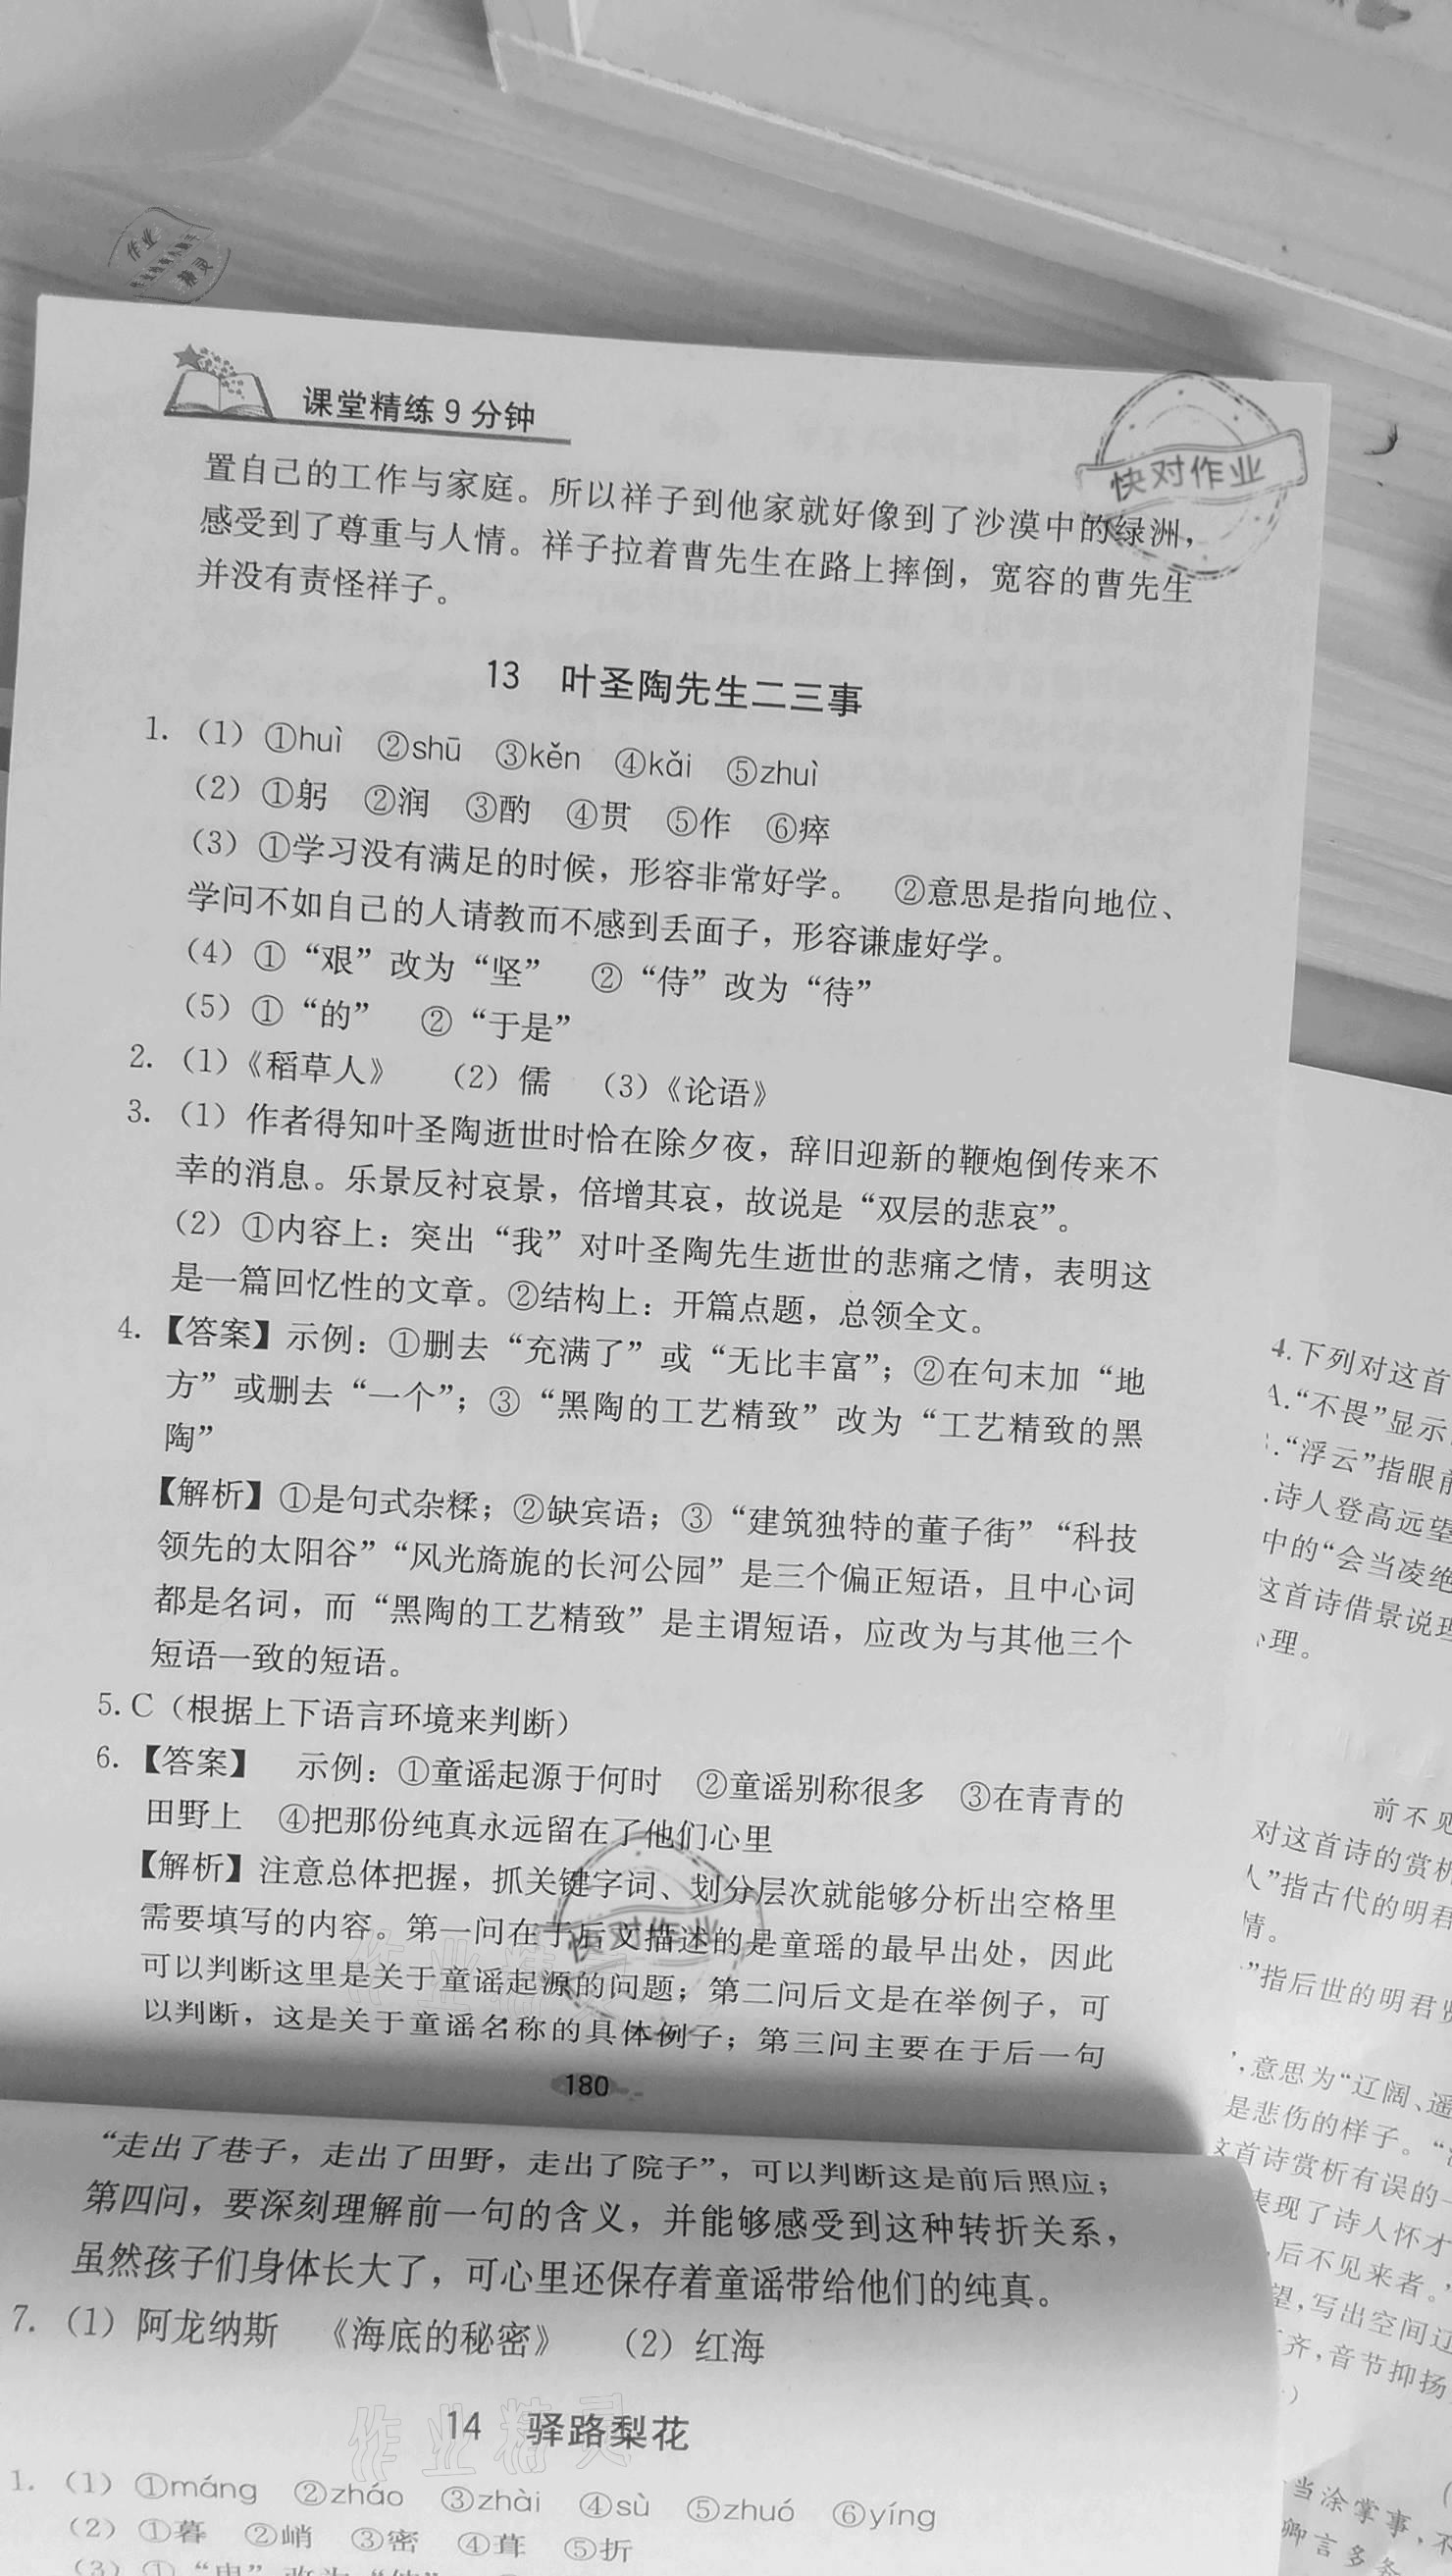 课堂精练9分钟
快对作业
置自己的工作与家庭。所以祥子到他家就好像到了沙漠中的绿洲，
感受到了尊重与人情。祥子拉着曹先生在路上摔倒，宽容的曹先生
并没有责怪祥子。
13 叶圣陶先生二三事
1. （1）①huì ②shū ③kěn ④kǎi ⑤zhuì
（2）①躬 ②润 ③酌 ④贯 ⑤作 ⑥瘁
（3）①学习没有满足的时候，形容非常好学。 ②意思是指向地位、
学问不如自己的人请教而不感到丢面子，形容谦虚好学。
（4）①“艰”改为“坚” ②“侍”改为“待”
（5）①“的” ②“于是”
2. （1）《稻草人》 （2）儒 （3）《论语》
3. （1）作者得知叶圣陶逝世时恰在除夕夜，辞旧迎新的鞭炮倒传来不
幸的消息。乐景反衬哀景，倍增其哀，故说是“双层的悲哀”。
（2）①内容上：突出“我”对叶圣陶先生逝世的悲痛之情，表明这
是一篇回忆性的文章。②结构上：开篇点题，总领全文。
4. 【答案】示例：①删去“充满了”或“无比丰富”；②在句末加“地
方”或删去“一个”；③“黑陶的工艺精致”改为“工艺精致的黑
陶”
【解析】①是句式杂糅；②缺宾语；③“建筑独特的董子街”“科技
领先的太阳谷”“风光旖旎的长河公园”是三个偏正短语，且中心词
都是名词，而“黑陶的工艺精致”是主谓短语，应改为与其他三个
短语一致的短语。
5. C（根据上下语言环境来判断）
6. 【答案】 示例：①童谣起源于何时 ②童谣别称很多 ③在青青的
田野上 ④把那份纯真永远留在了他们心里
【解析】注意总体把握，抓关键字词、划分层次就能够分析出空格里
需要填写的内容。第一问在于后文描述的是童瑶的最早出处，因此
可以判断这里是关于童谣起源的问题；第二问后文是在举例子，可
以判断，这是关于童谣名称的具体例子；第三问主要在于后一句
快对作业
180
“走出了巷子，走出了田野，走出了院子”，可以判断这是前后照应；
第四问，要深刻理解前一句的含义，并能够感受到这种转折关系，
虽然孩子们身体长大了，可心里还保存着童谣带给他们的纯真。
7. （1）阿龙纳斯 《海底的秘密》 （2）红海
作业精灵
14 驿路梨花
1. （1）①máng ②zháo ③zhài ④sù ⑤zhuó ⑥yíng
（2）①暮 ②峭 ③密 ④茸 ⑤折
4.下列对这首
“不畏”显示
“浮云”指眼前
诗人登高远望
中的“会当凌绝
这首诗借景说理
理。
前不见
对这首诗的赏析
”指古代的明君
情。
”指后世的明君贤
意思为“辽阔、遥
是悲伤的样子。
这首诗赏析有误的一
表现了诗人怀才
后不见来者。
望，写出空间辽
齐，音节抑扬
当涂掌事，不
卿言多务